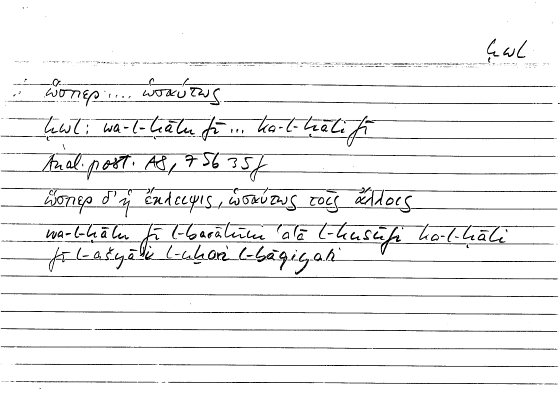 ḥwl
ὥσπερ .... ὡσαύτως
ḥwl: wa-l-ḥālu fī ... ka-l-ḥāli fī
Anal. post. A8, 75b 35f
ὥσπερ δ' ἡ ἔκλειψις, ὡσαύτως τοῖς ἄλλοις
wa-l-ḥālu fī l-barāhīni ʿalā l-kusūfi ka-l-ḥāli
fī l-ašyāʾi l-uḫari l-bāqiyati